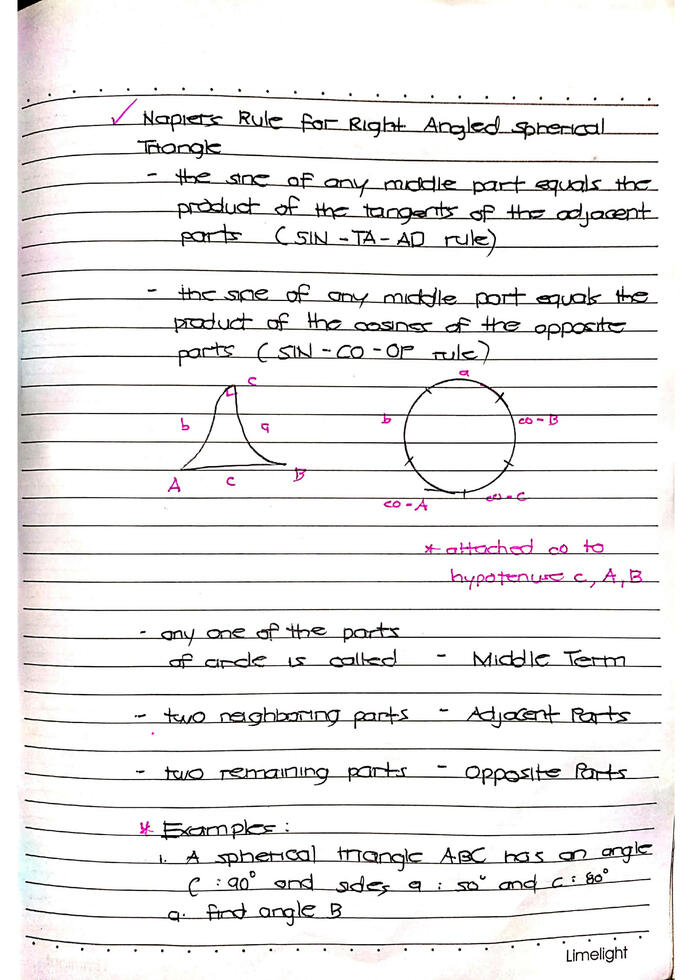 ✓ Napiers Rule for Right Angled Spherical
Triangle
- the sine of any middle part equals the
product of the tangents of the adjacent
parts (SIN-TA-AD rule)
- the sine of any middle part equals the
product of the cosines of the opposite
parts (SIN-CO-OP rule)
C
a
b
a
b
co-B
A
c
B
co-A
co-c
* attached co to
hypotenuse c, A, B
- any one of the parts
of circle is called - Middle Term
- two neighboring parts - Adjacent Parts
- two remaining parts - Opposite Parts
* Examples:
1. A spherical triangle ABC has an angle
C : 90° and sides a : 50° and c : 80°
a. find angle B
Limelight